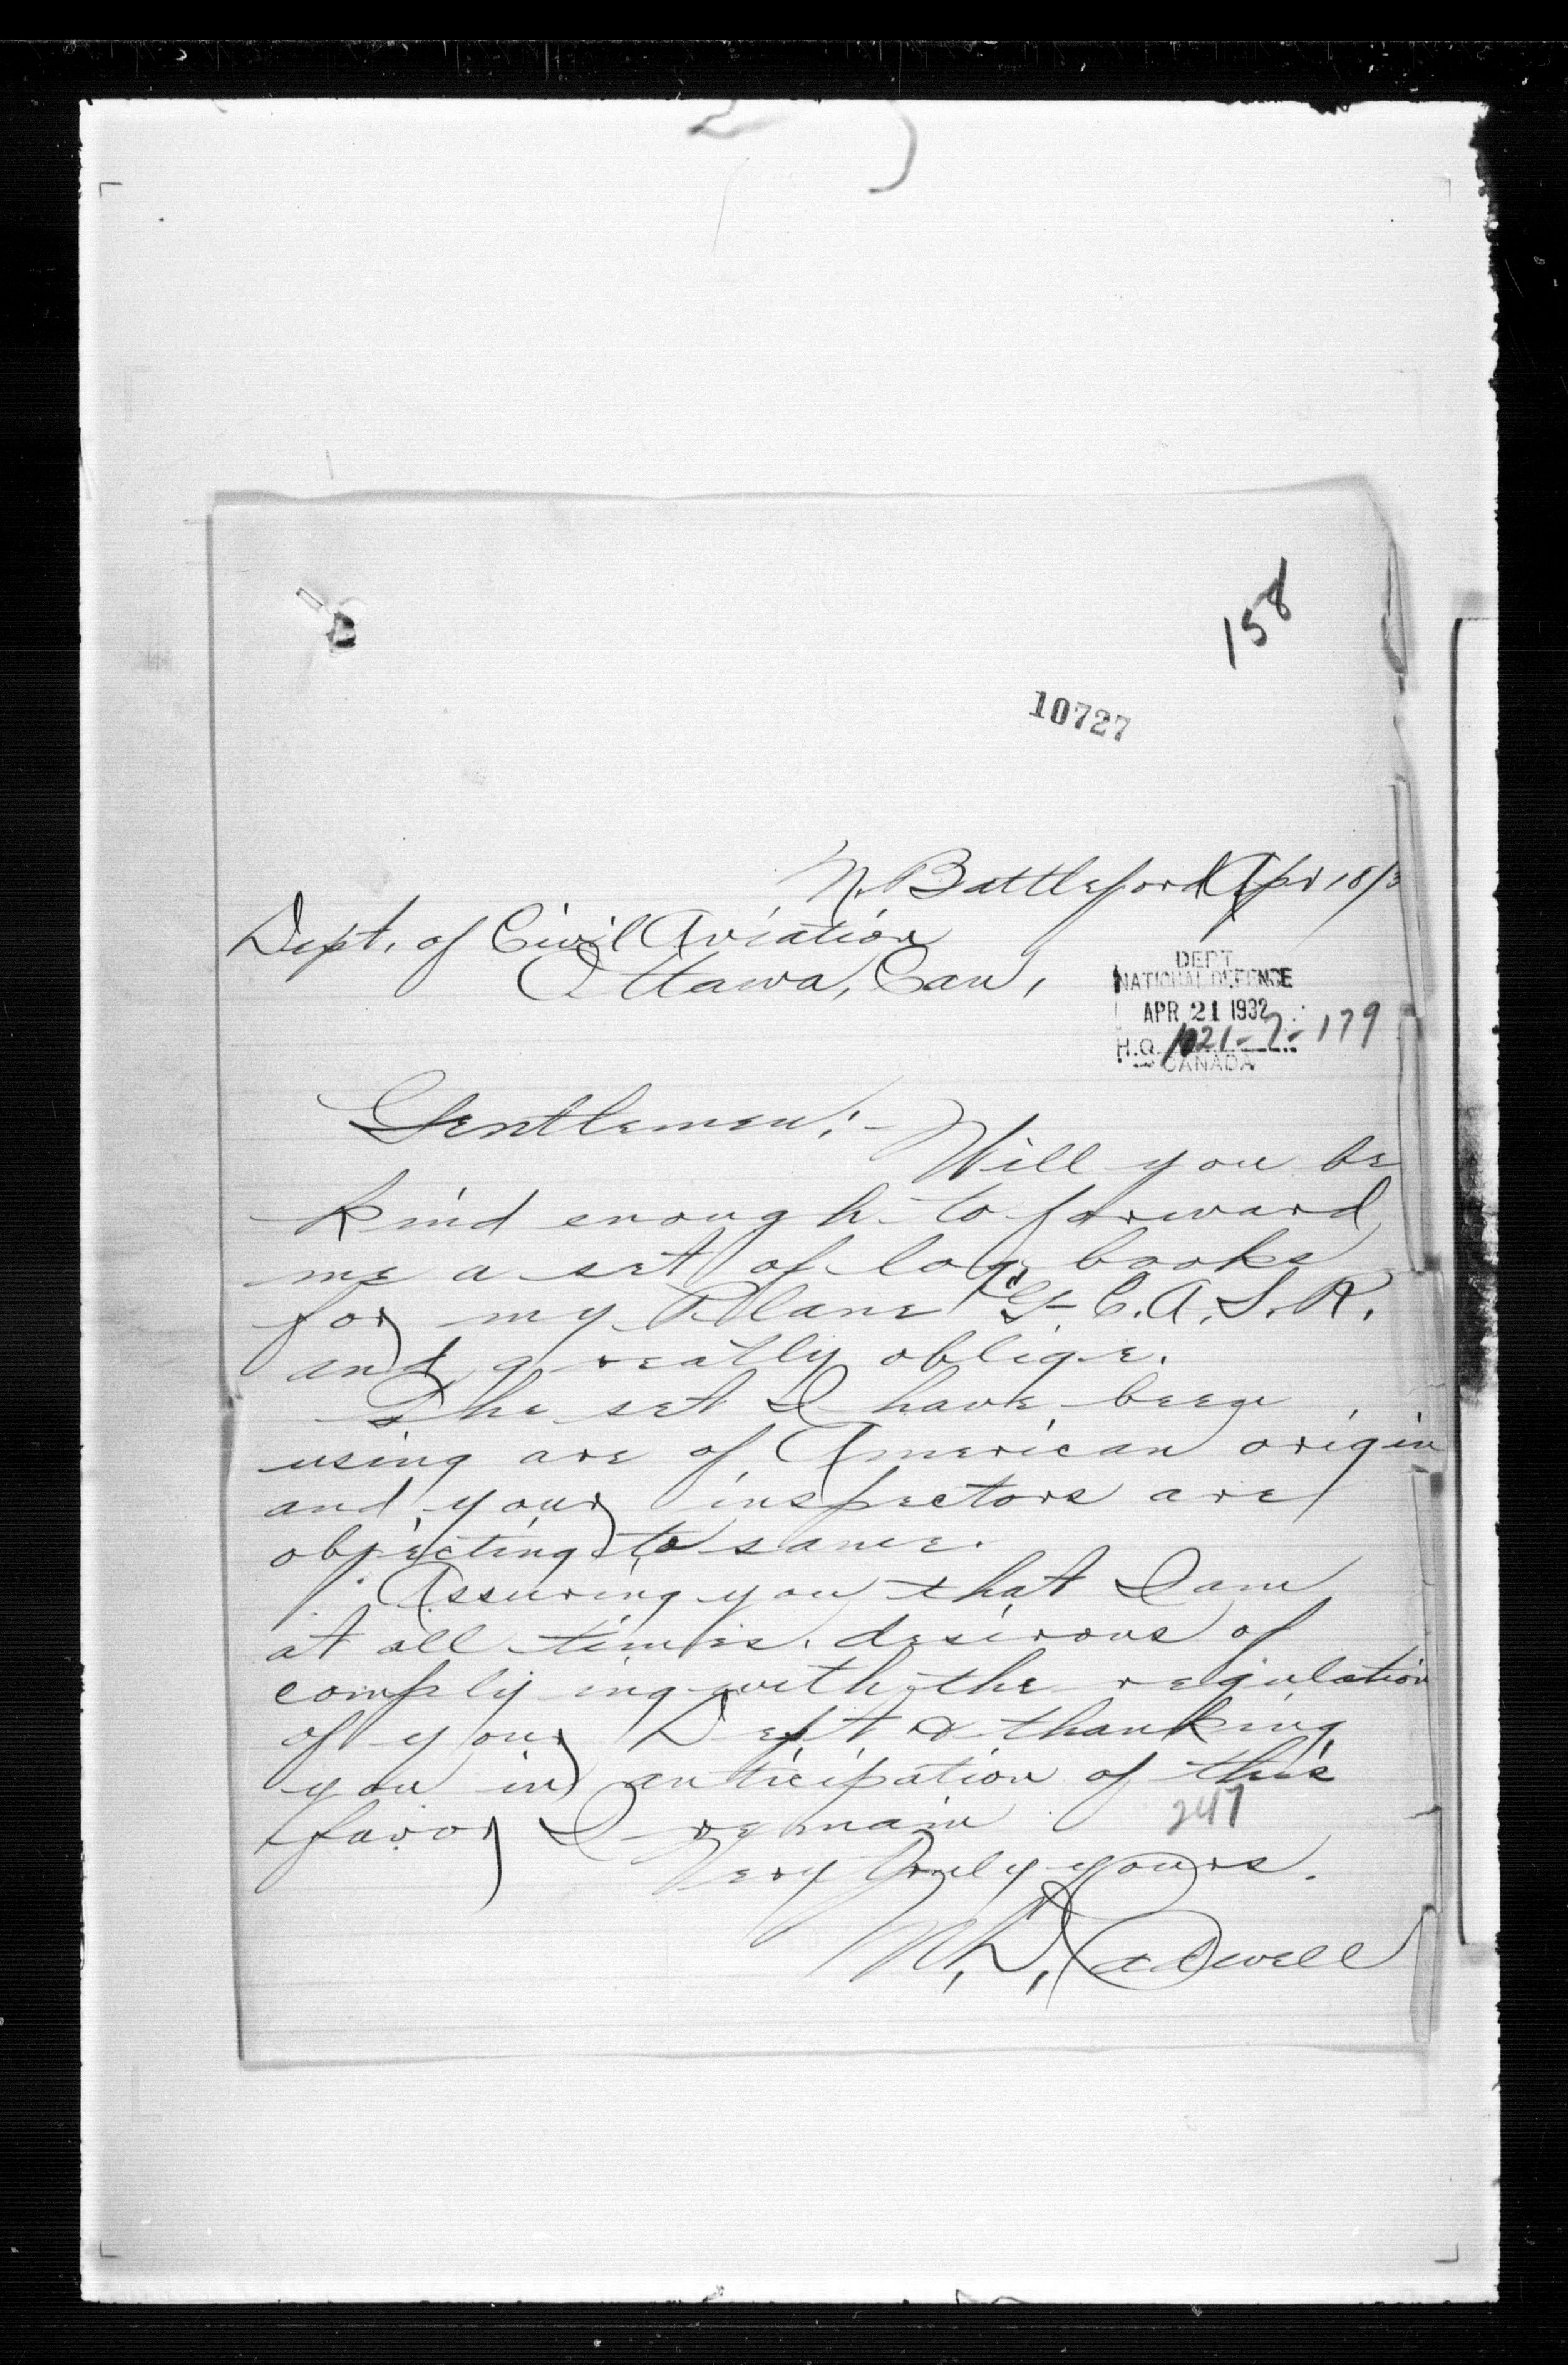 158
10727
N. Battleford Apr 18/3
Dept. of Civil Aviation
Ottawa, Can,
DEPT.
NATIONAL DEFENCE
APR 21 1932
H.Q. 1021-7-179
CANADA
Gentlemen:- Will you be
kind enough to forward
me a set of log books
for my Plane "G-C.A.S.R.
and greatly oblige.
The set I have been
using are of American origin
and your inspectors are
objecting to same.
Assuring you that I am
at all times desirous of
complying with the regulation
of your Dept & thanking
you in anticipation of this
favor I remain
247
Very truly yours.
M.D. Cadwell